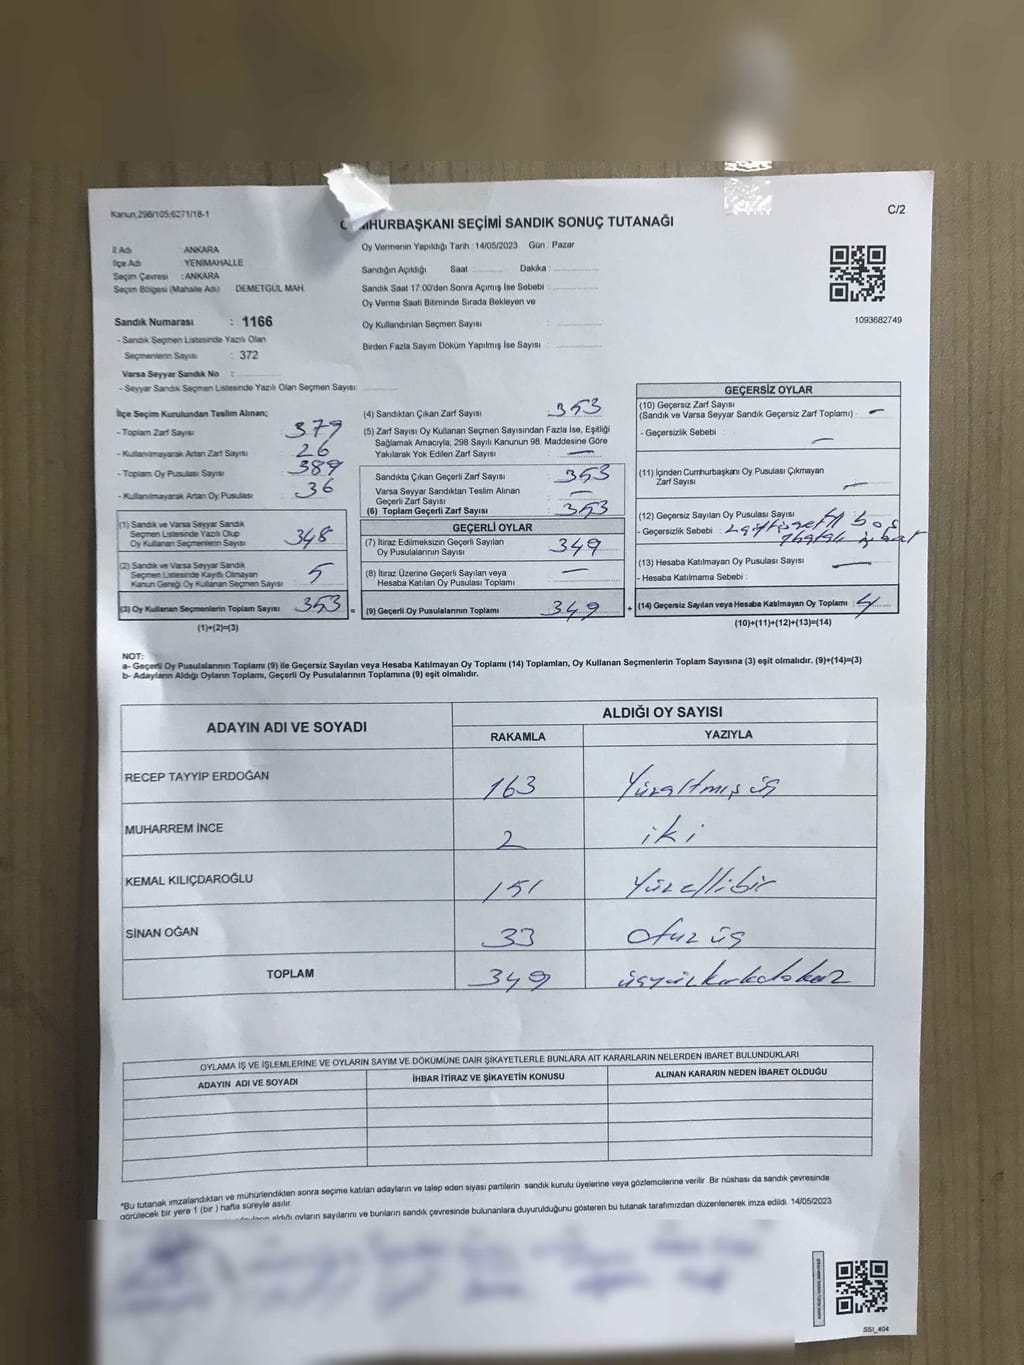 Kanun,298/105;6271/18-1
C/2
MHURBAŞKANI SEÇİMİ SANDIK SONUÇ TUTANAĞI
İl Adı ANKARA
İlçe Adı YENİMAHALLE
Seçim Çevresi : ANKARA
Seçim Bölgesi (Mahalle Adı) DEMETGÜL MAH.
Oy Vermenin Yapıldığı Tarih : 14/05/2023 Gün : Pazar
Sandığın Açıldığı Saat ............ Dakika : ............
Sandık Saat 17:00'den Sonra Açımış İse Sebebi : ............
Oy Verme Saati Bitiminde Sırada Bekleyen ve
Oy Kullandırılan Seçmen Sayısı : ............
Birden Fazla Sayım Döküm Yapılmış İse Sayısı : ............
1093682749
Sandık Numarası : 1166
- Sandık Seçmen Listesinde Yazılı Olan
Seçmenlerin Sayısı : 372
Varsa Seyyar Sandık No : ............
- Seyyar Sandık Seçmen Listesinde Yazılı Olan Seçmen Sayısı: ............
İlçe Seçim Kurulundan Teslim Alınan;
- Toplam Zarf Sayısı 379
- Kullanılmayarak Artan Zarf Sayısı 26
- Toplam Oy Pusulası Sayısı 389
- Kullanılmayarak Artan Oy Pusulası 36
(1) Sandık ve Varsa Seyyar Sandık
Seçmen Listesinde Yazılı Olup
Oy Kullanan Seçmenlerin Sayısı 348
(2) Sandık ve Varsa Seyyar Sandık
Seçmen Listesinde Kayıtlı Olmayan
Kanun Gereği Oy Kullanan Seçmen Sayısı 5
(3) Oy Kullanan Seçmenlerin Toplam Sayısı 353 =
(1)+(2)=(3)
(4) Sandıktan Çıkan Zarf Sayısı 353
(5) Zarf Sayısı Oy Kullanan Seçmen Sayısından Fazla İse, Eşitliği
Sağlamak Amacıyla; 298 Sayılı Kanunun 98. Maddesine Göre
Yakılarak Yok Edilen Zarf Sayısı —
Sandıkta Çıkan Geçerli Zarf Sayısı 353
Varsa Seyyar Sandıktan Teslim Alınan
Geçerli Zarf Sayısı —
(6) Toplam Geçerli Zarf Sayısı 353
GEÇERLİ OYLAR
(7) İtiraz Edilmeksizin Geçerli Sayılan
Oy Pusulalarının Sayısı 349
(8) İtiraz Üzerine Geçerli Sayılan veya
Hesaba Katılan Oy Pusulası Toplamı —
(9) Geçerli Oy Pusulalarının Toplamı 349 +
GEÇERSİZ OYLAR
(10) Geçersiz Zarf Sayısı
(Sandık ve Varsa Seyyar Sandık Geçersiz Zarf Toplamı) —
- Geçersizlik Sebebi : —
(11) İçinden Cumhurbaşkanı Oy Pusulası Çıkmayan
Zarf Sayısı —
(12) Geçersiz Sayılan Oy Pusulası Sayısı 4
- Geçersizlik Sebebi : boş
(13) Hesaba Katılmayan Oy Pusulası Sayısı —
- Hesaba Katılmama Sebebi :
(14) Geçersiz Sayılan veya Hesaba Katılmayan Oy Toplamı : 4
(10)+(11)+(12)+(13)=(14)
NOT:
a- Geçerli Oy Pusulalarının Toplamı (9) ile Geçersiz Sayılan veya Hesaba Katılmayan Oy Toplamı (14) Toplamları, Oy Kullanan Seçmenlerin Toplam Sayısına (3) eşit olmalıdır. (9)+(14)=(3)
b- Adayların Aldığı Oyların Toplamı, Geçerli Oy Pusulalarının Toplamına (9) eşit olmalıdır.
ADAYIN ADI VE SOYADI
ALDIĞI OY SAYISI
RAKAMLA YAZIYLA
RECEP TAYYİP ERDOĞAN 163 Yüzaltmış üç
MUHARREM İNCE 2 iki
KEMAL KILIÇDAROĞLU 151 Yüzellibir
SİNAN OĞAN 33 Otuz üç
TOPLAM 349 üçyüzkırkdokuz
OYLAMA İŞ VE İŞLEMLERİNE VE OYLARIN SAYIM VE DÖKÜMÜNE DAİR ŞİKAYETLERLE BUNLARA AİT KARARLARIN NELERDEN İBARET BULUNDUKLARI
ADAYIN ADI VE SOYADI İHBAR İTİRAZ VE ŞİKAYETİN KONUSU ALINAN KARARIN NEDEN İBARET OLDUĞU
*Bu tutanak imzalandıktan ve mühürlendikten sonra seçime katılan adayların ve talep eden siyasi partilerin sandık kurulu üyelerine veya gözlemcilerine verilir .Bir nüshası da sandık çevresinde
görülecek bir yere 1 (bir ) hafta süreyle asılır.
aldığı oyların sayılarını ve bunların sandık çevresinde bulunanlara duyurulduğunu gösteren bu tutanak tarafımızdan düzenlenerek imza edildi. 14/05/2023
SSI_404